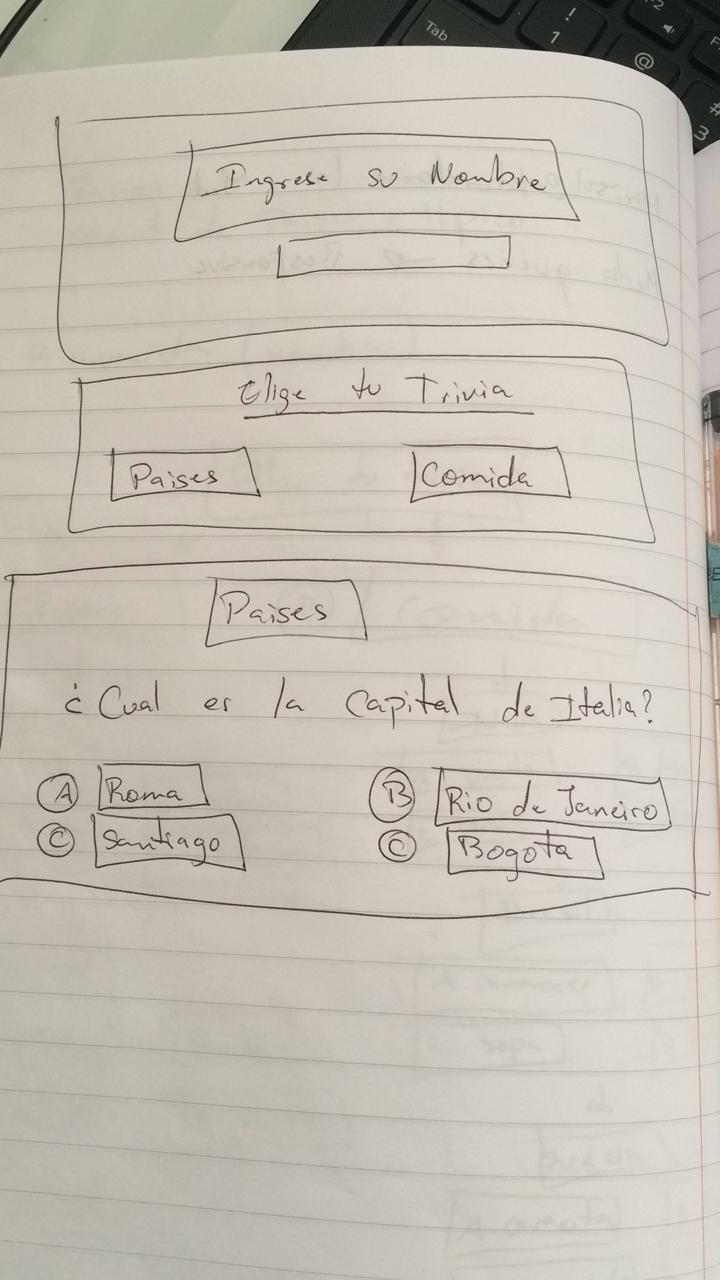 Tab
!
1
@
F2
#
3
Ingrese su Nombre
Elige tu Trivia
Paises Comida
Paises
¿Cual es la Capital de Italia?
A Roma B Rio de Janeiro
C Santiago C Bogota